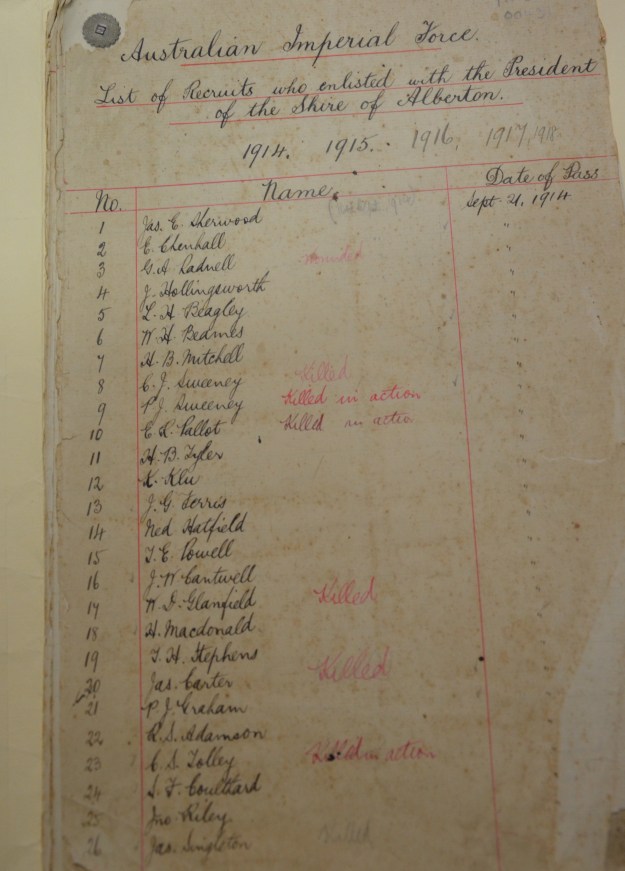 Australian Imperial Force.
List of Recruits who enlisted with the President
of the Shire of Alberton.
1914. 1915. 1916, 1917, 1918
No. Name. Date of Pass
1 Jas. E. Sherwood Sept. 21, 1914
2 E. Chenhall "
3 G. A. Radnell wounded "
4 J. Hollingsworth "
5 L. H. Beagley "
6 W. H. Beames "
7 H. B. Mitchell "
8 C. J. Sweeney Killed "
9 P. J. Sweeney Killed in action "
10 E. L. Pallot Killed in action "
11 H. B. Tyler "
12 "
13 J. G. Ferris "
14 Ned Hatfield "
15 T. E. Powell "
16 J. W. Cantwell "
17 W. D. Glanfield Killed "
18 H. Macdonald "
19 T. H. Stephens "
20 Jas. Carter Killed "
21 P. J. Graham
22 R. S. Adamson
23 C. S. Tolley Killed in action
24 S. F. Coulthard
25 Jno. Riley.
26 Jas. Singleton Killed